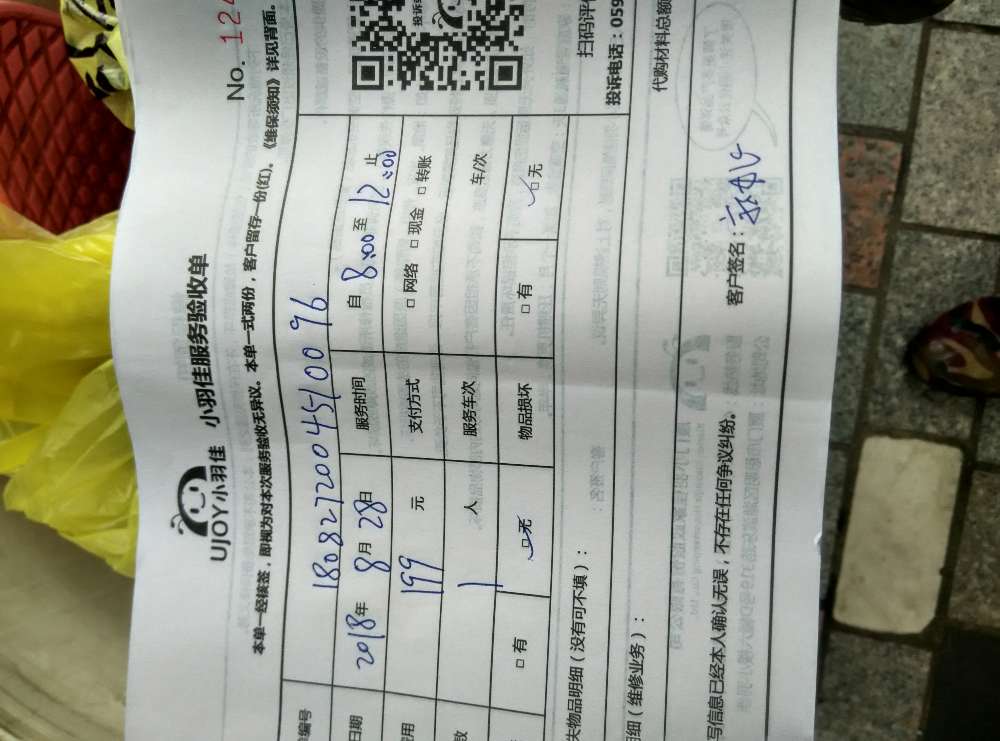 No. 124
UJOY小羽佳 小羽佳服务验收单
本单一经核签，即视为对本次服务验收无异议。本单一式两份，客户留存一份(红)。《维保须知》详见背面。
编号 18082720045100 96
日期 2018年 8月 28日 服务时间 自 8:00 至 12:00 止
费用 199 元 支付方式 □ 网络 □ 现金 □ 转账
数 1 人 服务车次 车/次
□ 有 □ 无 物品损坏 □ 有 □ 无
失物品明细（没有可不填）：
细（维修业务）：
扫码评价
投诉电话：059
代购材料总额
写信息已经本人确认无误，不存在任何争议纠纷。 客户签名：